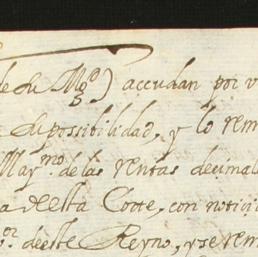 de su Mg.^o) accudan por v
su possibilidad, y lo rem
May^mo. de las rentas decimal
a desta Corte, con notici
or. deeste Reyno, y se rem